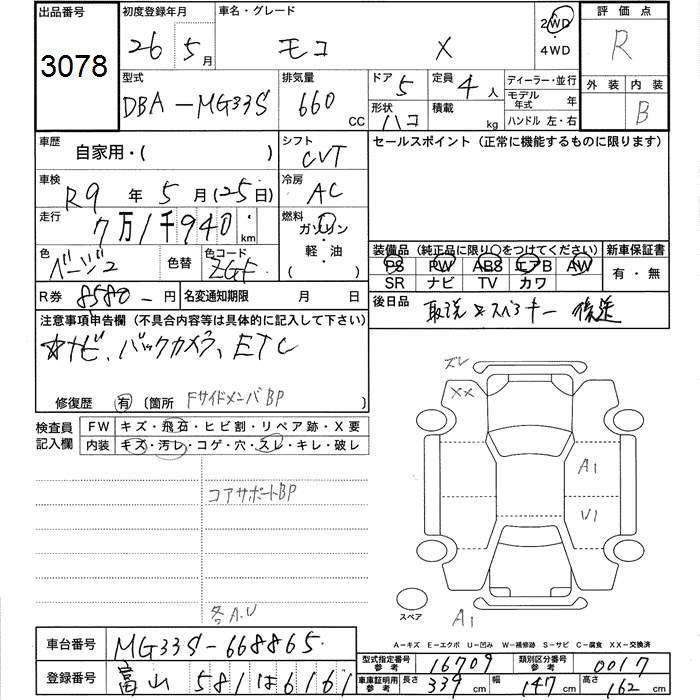 出品番号 初度登録年月 車名・グレード 2WD 評価点
3078 26年 5月 モコ X 4WD R
型式 排気量 ドア 5 定員 4人 ディーラー・並行 外装 内装
DBA-MG33S 660cc 形状 ハコ 積載 kg モデル年式 年 B
ハンドル 左・右
車歴 自家用・( ) シフト CVT セールスポイント(正常に機能するものに限ります)
車検 R9年 5月(25日) 冷房 AC
走行 7万1千940km 燃料 ガソリン
軽・油
( )
色 ベージュ 色替 色コード ZGF 装備品(純正品に限り○をつけてください) 新車保証書
PS PW ABS エアB AW 有・無
SR ナビ TV カワ
R券 8580-円 名変通知期限 月 日 後日品 取説 & スペキー 後送
注意事項申告欄(不具合内容等は具体的に記入して下さい)
☆ナビ、バックカメラ、ETC
修復歴 有 〔箇所 FサイドメンバBP
検査員記入欄 FW キズ・飛石・ヒビ割・リペア跡・X要
内装 キズ・汚レ・コゲ・穴・スレ・キレ・破レ
コアサポートBP
各A.U
ズレ
XX
A1
U1
スペア A1
A-キズ E-エクボ U-凹み W-補修跡 S-サビ C-腐食 XX-交換済
車台番号 MG33S-668865 型式指定番号 参考 16709 類別区分番号 参考 0017
登録番号 富山 581 は 6161 車庫証明用 参考 長さ 339cm 幅 147cm 高さ 162cm